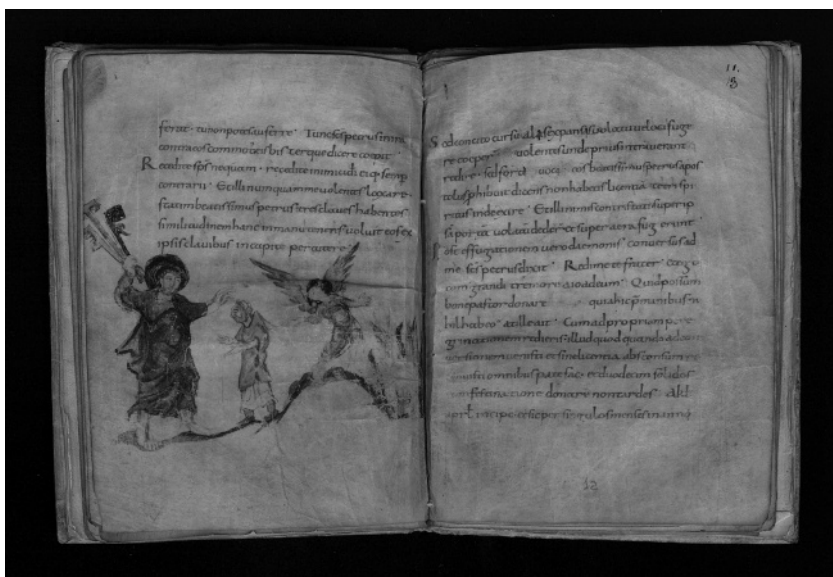 ferat · tu non potes auferre · Tunc scs petrus in ira
contra eos bis terque dicere coepit
Recedite sps nequam · recedite inimici di eiq· semp
contrarii · Et illi numquam me volentes laxare ·
statim beatissimus petrus tres claves habentes
similitudinem hanc in manu tenens voluit eos ex
ipsis clavibus in capite percutere ·
11.
3
Sed concito cursu alis expansis volatu veloci fuge
re coeper volentes unde prius intraverant
redire · sed forti voce eos beatissimus petrus apos
tolus phibuit dicens non habeatis licentiā teterri spi
ritus inde exire · Et illi nimis contristati super ip
sa portā volatū deder et super aera fugerunt
Post effugationem vero daemonis conversus ad
me scs petrus dixit · Redime te frater · ergo
cum grandi tremore aio ad eum · Quid possum
bone pastor donare quia hic p manibus ni
hil habeo · at ille ait · Cum ad propriam pere
grinationem redieris · illud quod quando ad con
versionem venisti et sine licentia absconsum re
tinuisti omnibus patefac · et duodecim solidos
cum festinatione donare non tardes · A kl
aprl incipe · et sic per singulos menses in annū
12